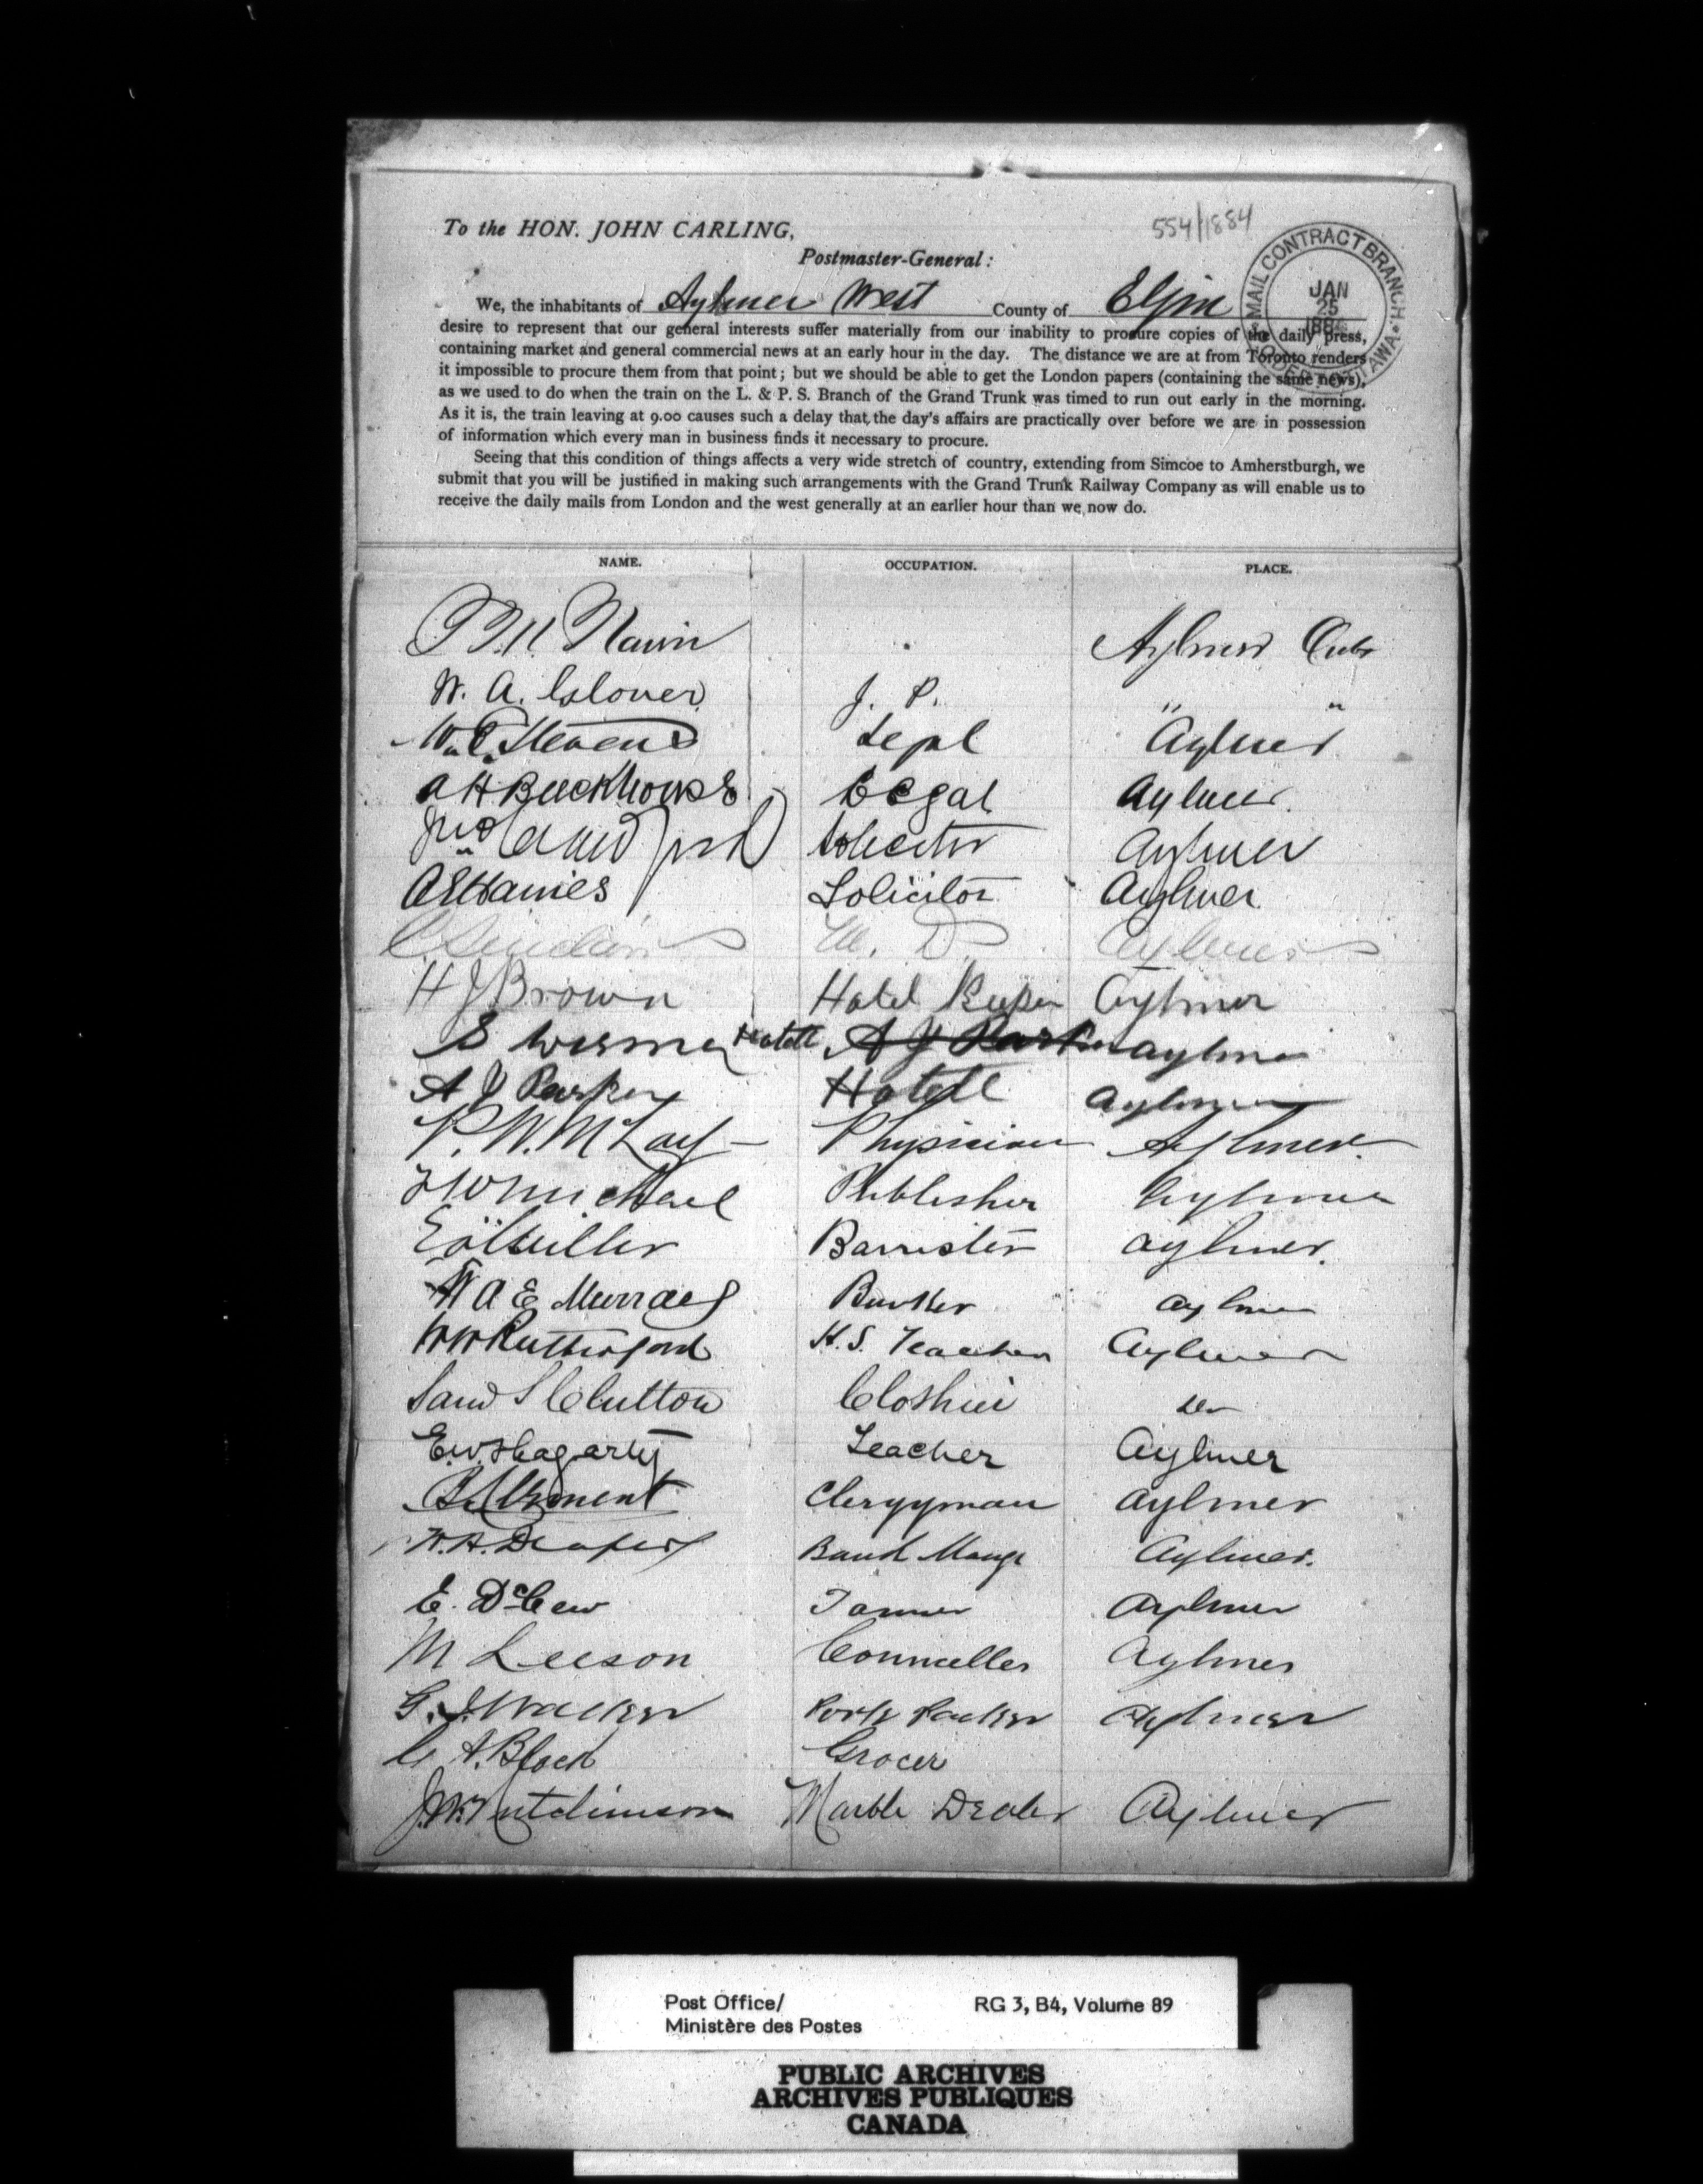 554/1884
To the HON. JOHN CARLING,
Postmaster-General:
MAIL CONTRACT BRANCH. OTTAWA
JAN
25
We, the inhabitants of Aylmer West County of Elgin
desire to represent that our general interests suffer materially from our inability to procure copies of the daily press,
containing market and general commercial news at an early hour in the day. The distance we are at from Toronto renders
it impossible to procure them from that point; but we should be able to get the London papers (containing the same news),
as we used to do when the train on the L. & P. S. Branch of the Grand Trunk was timed to run out early in the morning.
As it is, the train leaving at 9.00 causes such a delay that the day's affairs are practically over before we are in possession
of information which every man in business finds it necessary to procure.
Seeing that this condition of things affects a very wide stretch of country, extending from Simcoe to Amherstburgh, we
submit that you will be justified in making such arrangements with the Grand Trunk Railway Company as will enable us to
receive the daily mails from London and the west generally at an earlier hour than we now do.
NAME. OCCUPATION. PLACE.
Aylmer
W. A. Glover J. P. " "
Stevens Legal Aylmer
A H Backhouse Legal Aylmer.
Solicitor Aylmer
A E Haines Solicitor Aylmer
C Sinclair M. D. Aylmer
H J Brown Hotel Keeper Aylmer
S Wismer Hotell A J Parker Aylmer
A J Parker Hotell Aylmer
P. W. McLay Physician Aylmer.
Publisher Aylmer
E A Miller Barrister Aylmer.
W A E Murray Aylmer
W W Rutherford H. S. Teacher Aylmer
Saml S Clutton Clothier do
E. W. Hagarty Teacher Aylmer
Clement Clergyman Aylmer
W. A. Draper Bank Mangr Aylmer.
E. DeCew Tanner Aylmer
M Leeson Counceller Aylmer
G. J. Walker Pork Packer Aylmer
A. Black Grocer
J. W. Hutchinson Marble Dealer Aylmer
Post Office/ RG 3, B4, Volume 89
Ministère des Postes
PUBLIC ARCHIVES
ARCHIVES PUBLIQUES
CANADA